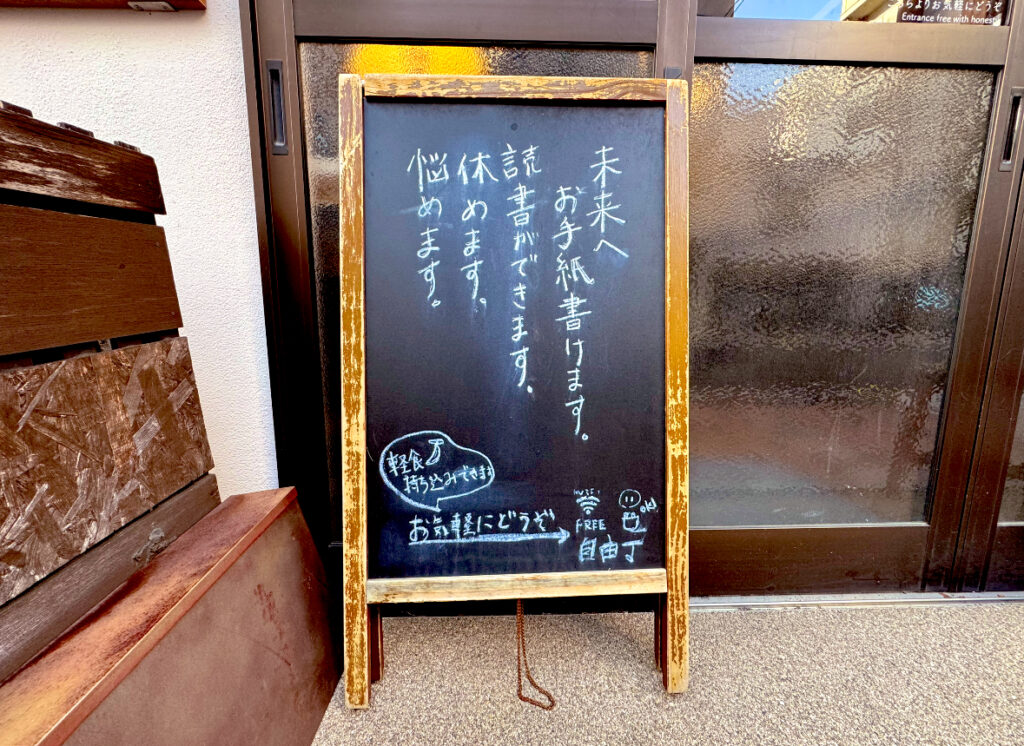 こちらよりお気軽にどうぞ
Entrance free with honest
未来へ
お手紙書けます。
読書ができます、
休めます。
悩めます。
軽食
持ち込みできます
お気軽にどうぞ
FREE
ok!
自由丁